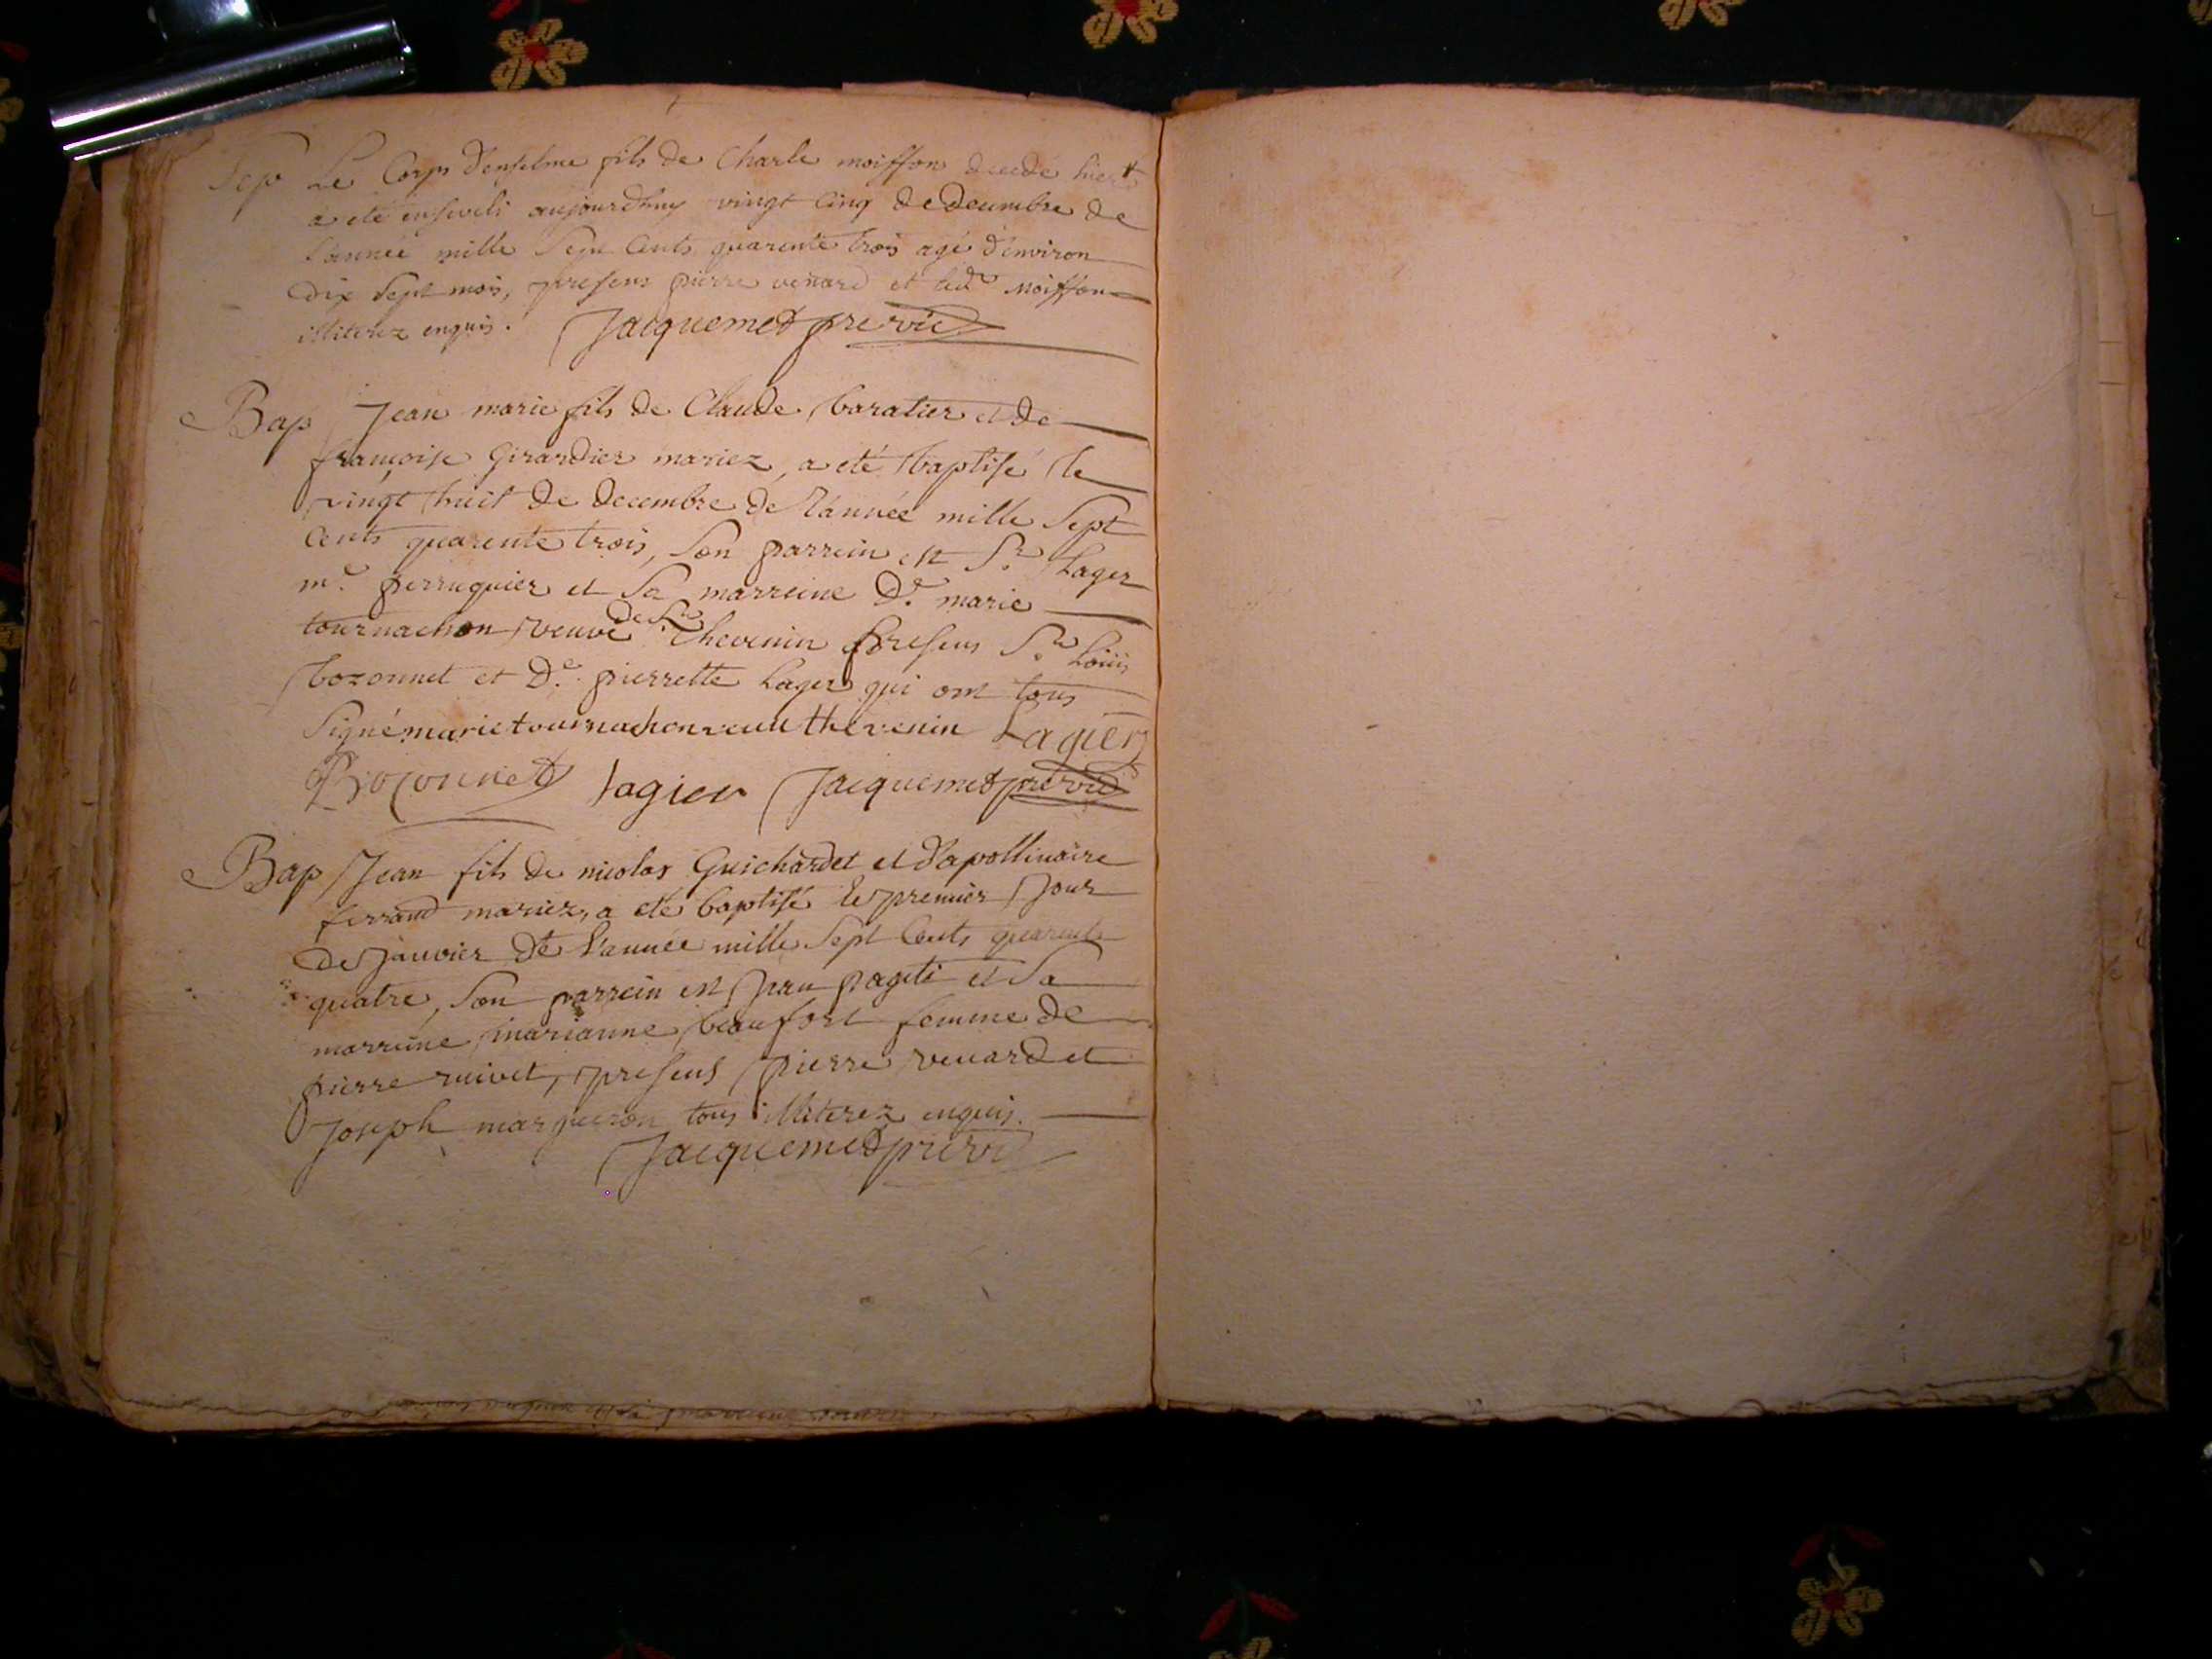 Sep Le Corps d'enselme fils de Charle moisson decedé hier
a eté enseveli aujourdhuy vingt cinq de decembre de
l'année mille sept cents quarente trois agé d'environ
dix sept mois, presens pierre venard et led. moisson
illiterez enquis. Jacquemet pre vic
Bap Jean marie fils de Claude baratier et de
françoise Girardier mariez, a eté baptisé le
vingt huit de decembre de l'année mille sept
cents quarente trois, son parrein est Sr. Lager
me. perruquier et sa marreine De. marie
tournachon veuve de Sr. thevenin presens Sr. Loüis
bozonnet et De. pierrette Lager qui ont tous
signé marie tournachon veuve thevenin Lagier
Bozonnet lagier Jacquemet pre vic
Bap Jean fils de nicolas Guichardet et d'apollinaire
ferrand mariez, a eté baptisé le premier jour
de Janvier de l'année mille sept cents quarente
quatre, son parrein est Jean pageti et sa
marreine marianne beaufort femme de
pierre ruivet, presens pierre venard et
Joseph margueron tous illiterez enquis.
Jacquemet pre vic